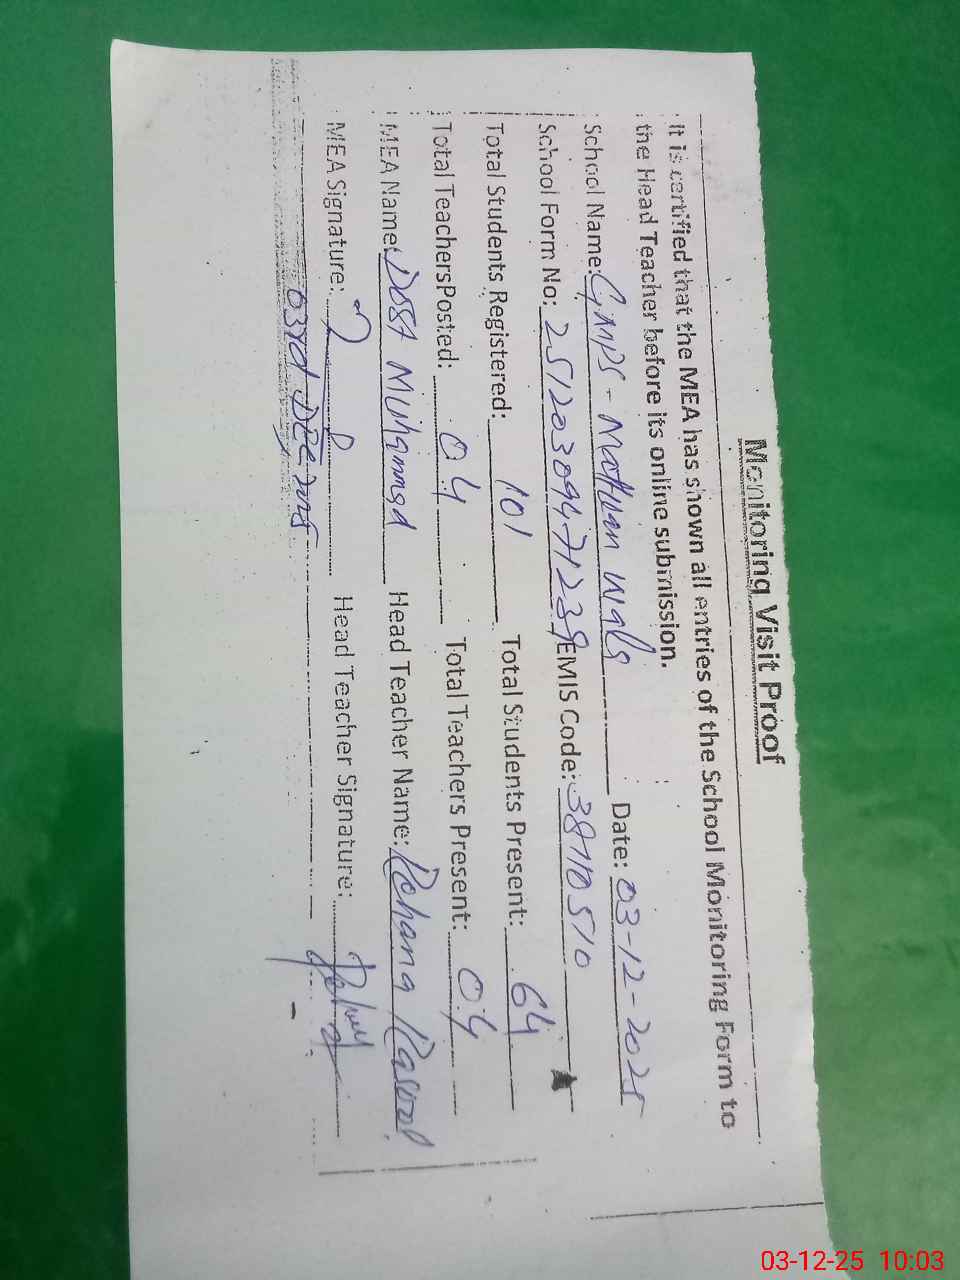 Monitoring Visit Proof
It is certified that the MEA has shown all entries of the School Monitoring Form to
the Head Teacher before its online submission.
School Name: GMPS - Mattuan Wala Date: 03-12-2025
School Form No: 2512030947 1239 EMIS Code: 38110510
Total Students Registered: 101 Total Students Present: 64
Total TeachersPosted: 04 Total Teachers Present: 04
MEA Name: Dost Muhammad Head Teacher Name: Rehana Rasool
MEA Signature: Head Teacher Signature:
03rd Dec 2025
03-12-25 10:03